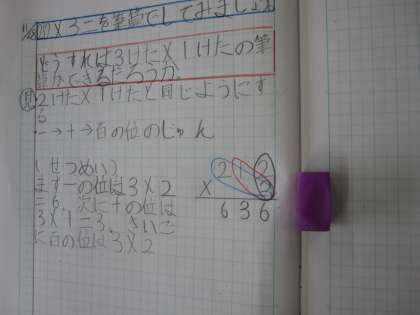 ×3=を筆算でしてみましょう
どうすれば3けた×1けたの筆
算ができるだろうか。
2けた×1けたと同じようにす
る
一→十→百の位のじゅん
(せつめい)
まず一の位は3×2
=6 次に十の位は
3×1=3、さいご
に百の位は、3×2
2 1 2
× 3
6 3 6